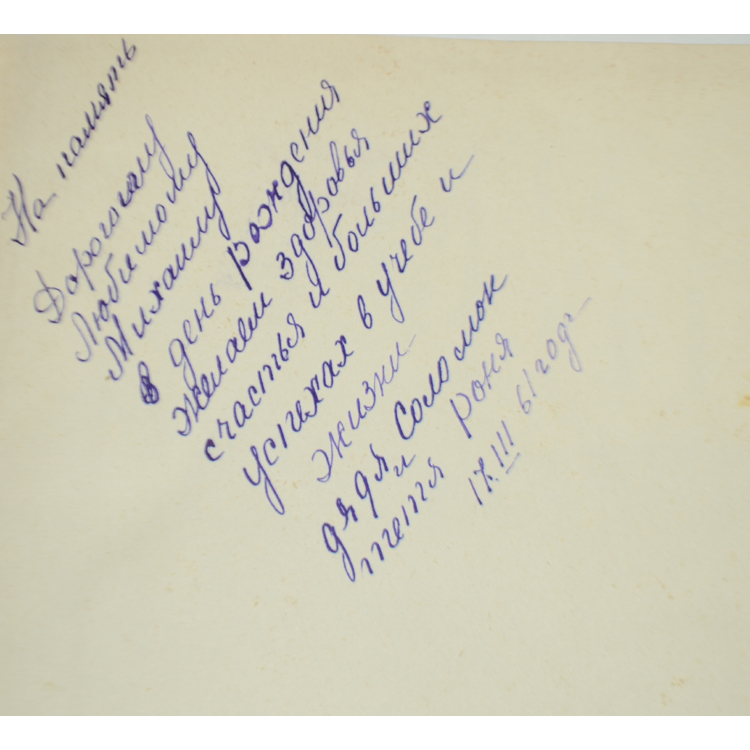 На память
Дорогому
Любимому
Михаилу
в день рождения
желаем здоровья
счастья и больших
успехах в учебе и
жизни
дядя Соломон
и
тетя Роня
17.III 61 года